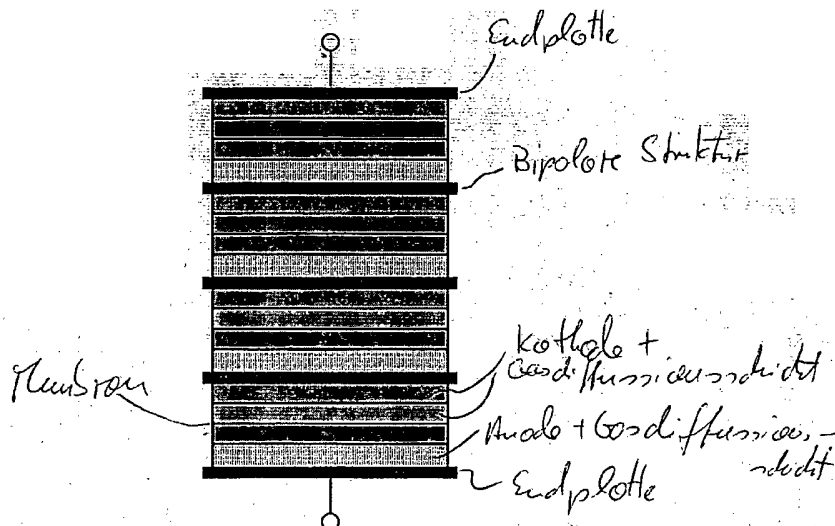 Endplatte
Bipolare Struktur
Kathode +
Gasdiffussionsschicht
Membran
Anode + Gasdiffussions-
schicht
Endplatte